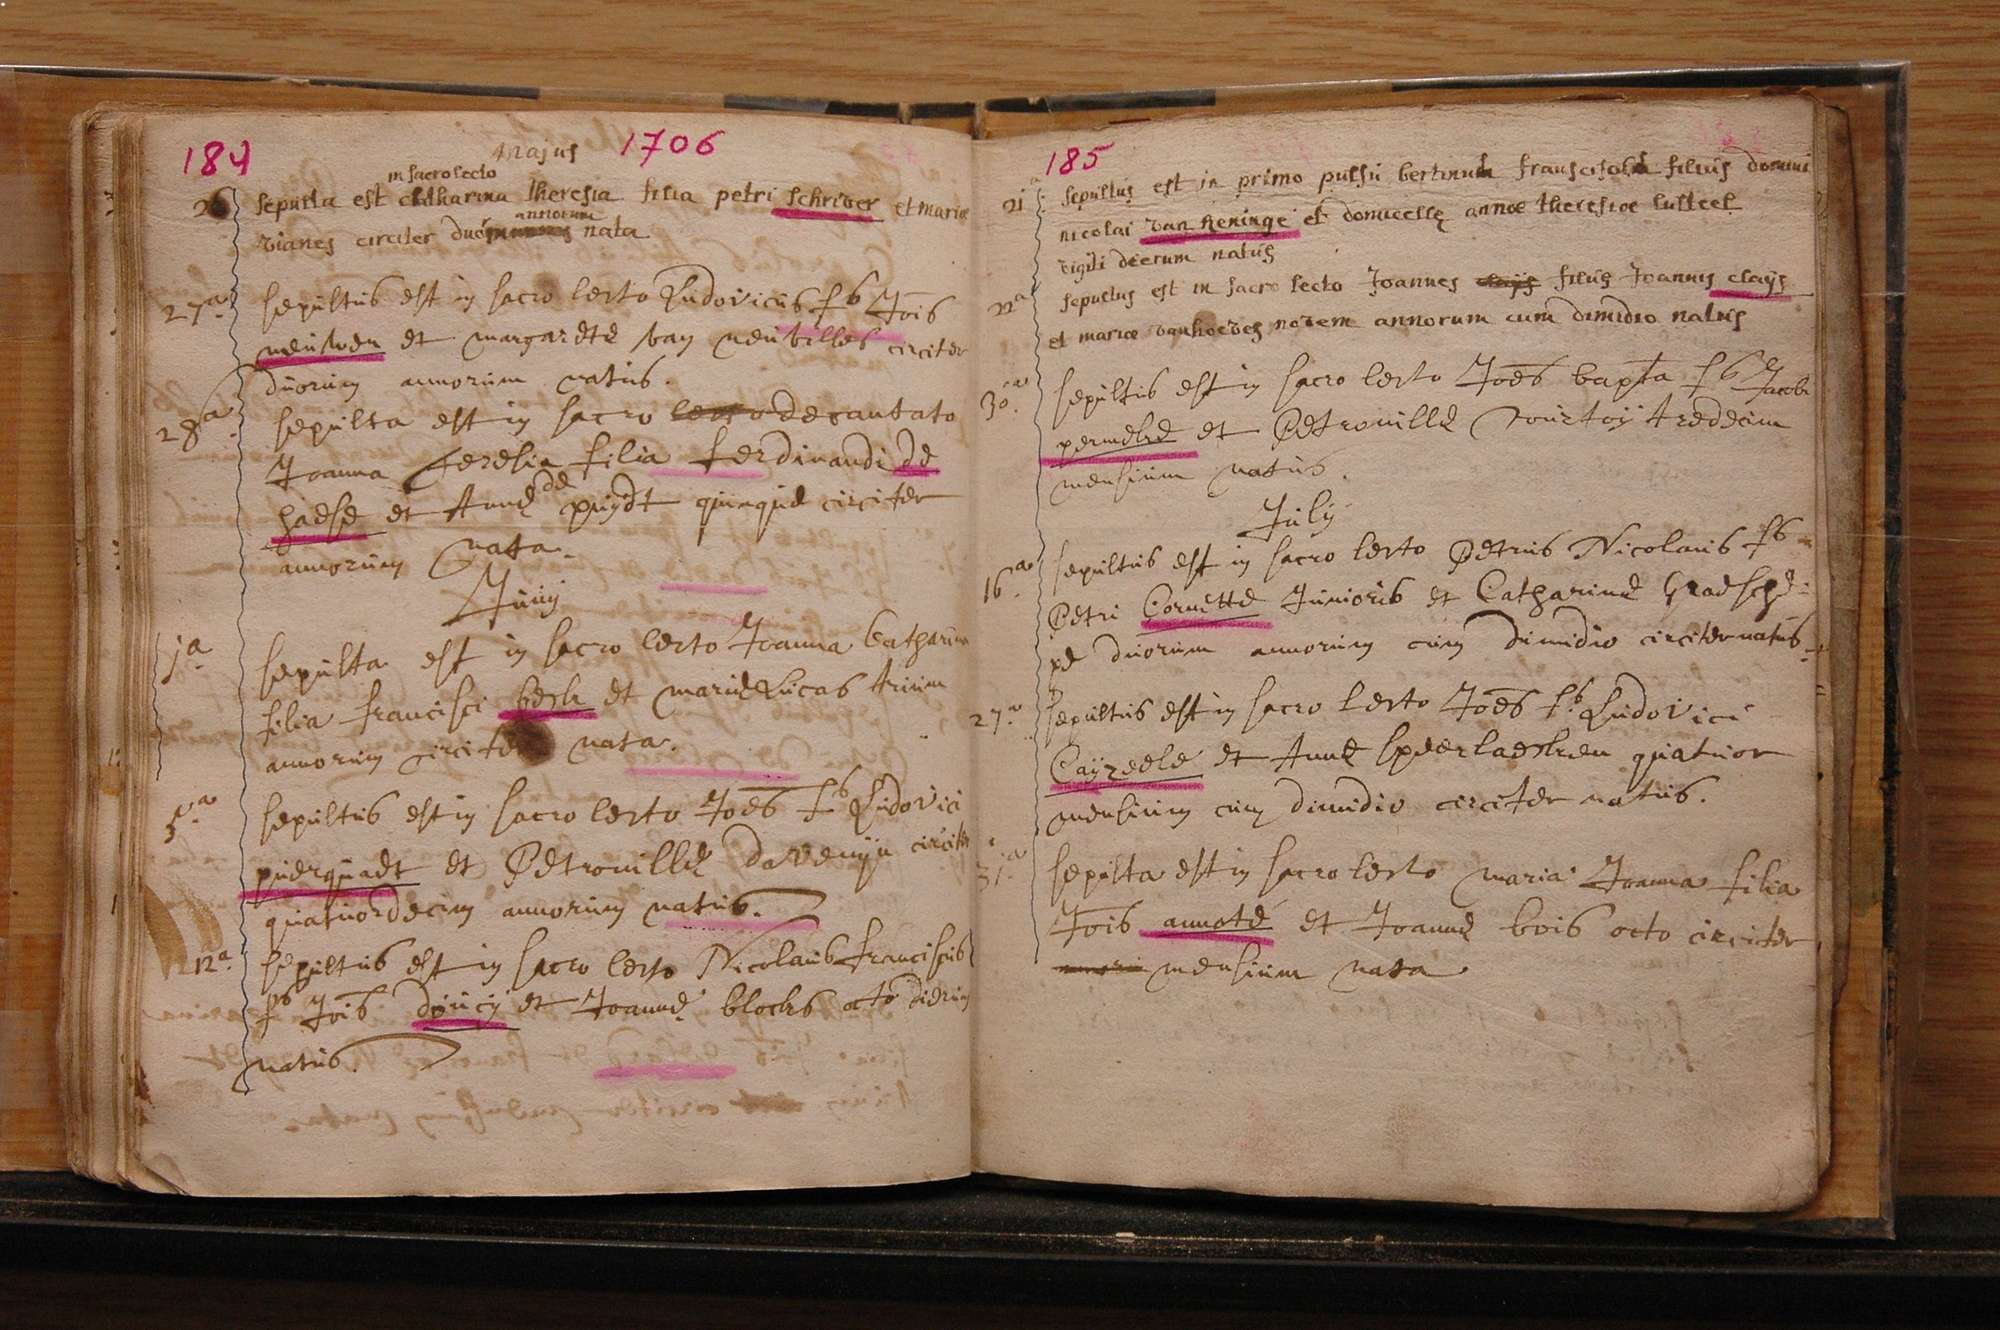 184 1706
Majus
in sacro lecto
26 sepulta est catharina theresia filia petri schriver et mariæ
vianes circiter duorum annorum nata
27a sepultus est in sacro lecto Ludovicus fs Jois
meuwen et margaretæ van neuvilles circiter
duorum annorum natus.
28a sepulta est in sacro lecto decantato
Joanna Teresia filia ferdinandi de
haese et Annæ de puydt quinque circiter
annorum nata.
Junij
ja sepulta est in sacro lecto Joanna Catharina
filia francisci beck et mariæ Lucas trium
annorum circiter nata.
5a sepultus est in sacro lecto Joes fs Ludovici
puerquaet et Petronillæ davenijn circiter
quatuordecim annorum natus.
12a sepultus est in sacro lecto Nicolaus franciscus
fs Jois doucij et Joannæ blocks octo dierum
natus.
185
21a sepultus est in primo pulsu bertinus franscisous filius domini
nicolai van Reninge et domicellæ annæ theresiæ lusteel
vigiti dierum natus
22a sepultus est in sacro lecto Joannes claijs filius Joannis claijs
et mariæ vanhoeves novem annorum cum dimidio natus
30a sepultus est in sacro lecto Joes bapta fs Jacobi
permeke et Petronillæ Tourtoij tredecim
mensium natus.
Julij
16a sepultus est in sacro lecto Petrus Nicolaus fs
Petri Cornette Junioris et Catharinæ Graesche
pe duorum annorum cum dimidio circiter natus.
27a sepultus est in sacro lecto Joes fs Ludovici
Cayzeele et Annæ speerlaecken quatuor
mensium cum dimidio circiter natus.
31a sepulta est in sacro lecto maria Joanna filia
Jois annoté et Joannæ bois octo circiter
mensium nata